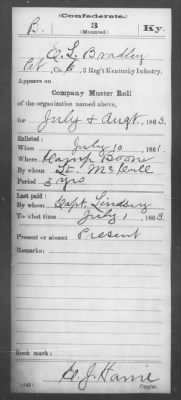 (Confederate.)
B. 3 Ky.
(Mounted.)
E. L. Bradley
Pvt Co. B, 3 Reg't Kentucky Infantry.
Appears on
Company Muster Roll
of the organization named above,
for July & Augt, 1863.
Enlisted:
When July 10, 1861.
Where Camp Boone
By whom Lt. McCall
Period 3 yrs
Last paid:
By whom Capt. Lindsey
To what time July 1, 1863.
Present or absent Present
Remarks:
Book mark:
(642)
Copyist.